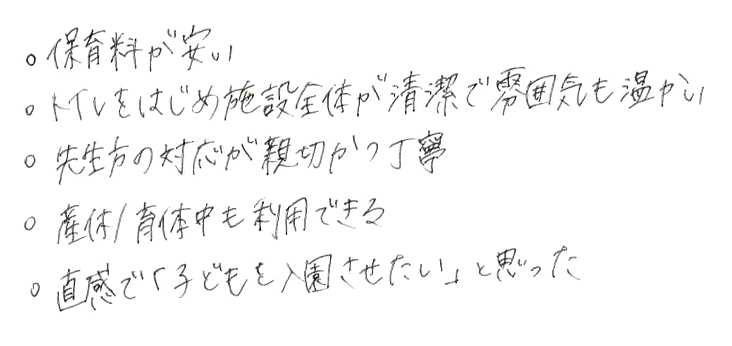 ○ 保育料が安い
○ トイレをはじめ施設全体が清潔で雰囲気も温かい
○ 先生方の対応が親切かつ丁寧
○ 産休/育休中も利用できる
○ 直感で「子どもを入園させたい」と思った